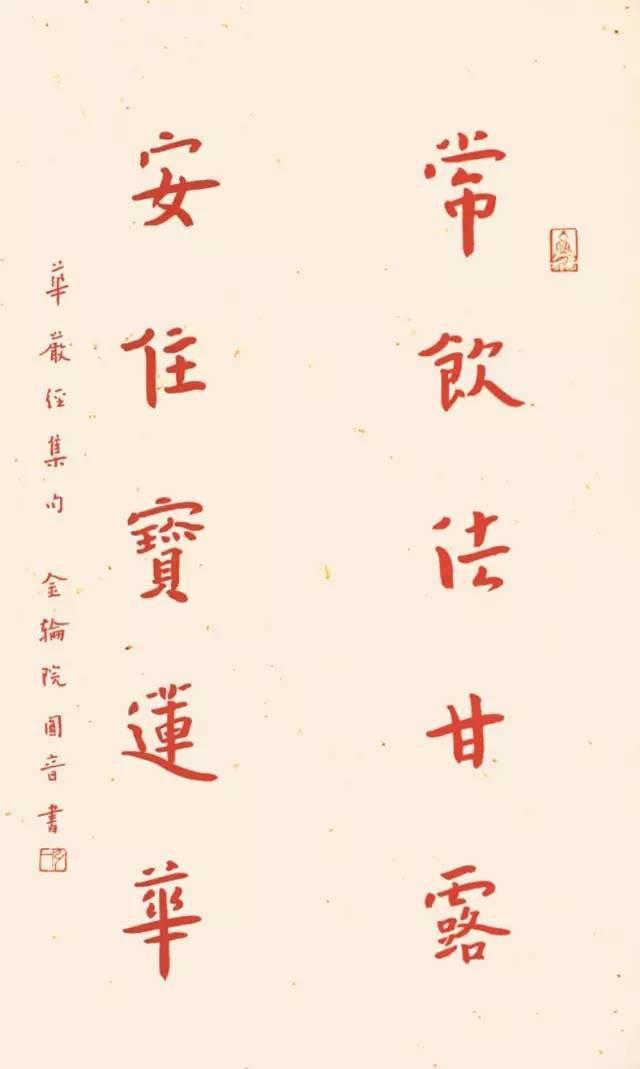 常飲法甘露
安住寶蓮華
華嚴經集句 金輪院圓音書